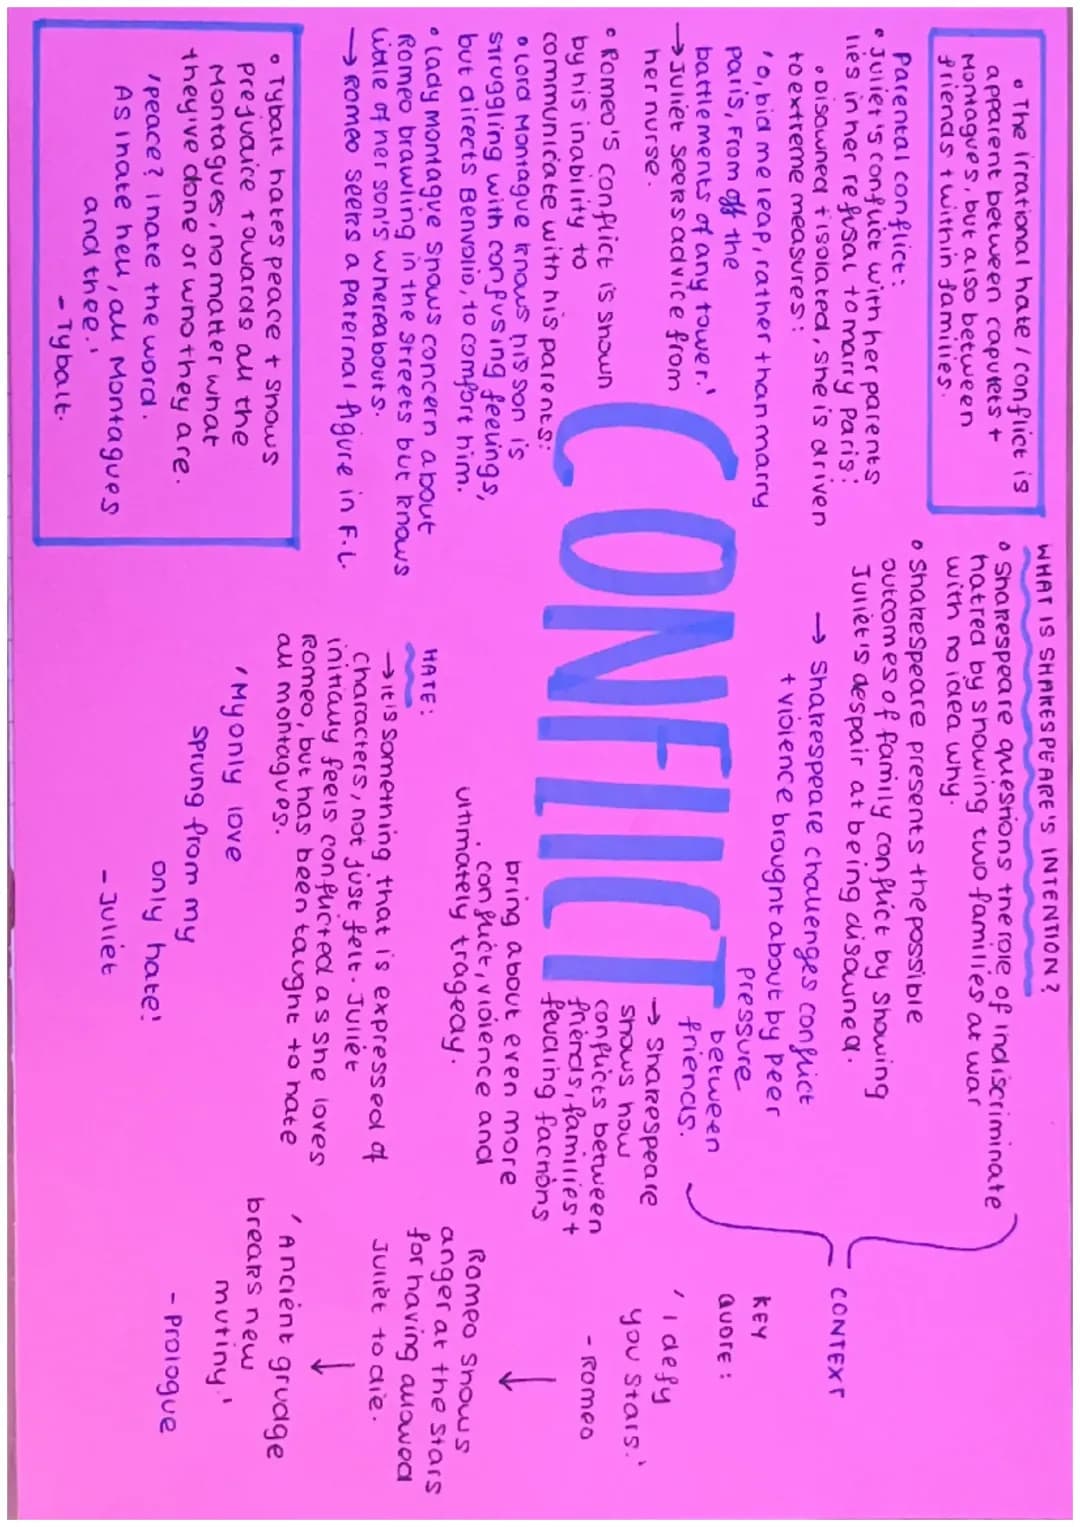 • The irrational hate / conflict is
apparent between capulets +
Montagues, but also between
friends + within families.
Parental conflict:
• Juliet's conflict with her parents
lies in her refusal to marry Paris:
• Disowned + isolated, she is driven
to extreme measures:
'O, bid me leap, rather than marry
Paris, From off the
battlements of any tower.'
→ Juliet seeks advice from
her nurse.
• Romeo's conflict is shown
by his inability to
communicate with his parents:
• Lord Montague knows his son is
struggling with confusing feelings,
but directs Benvolio, to comfort him.
• Lady Montague shows concern about
Romeo brawling in the streets but knows
little of her son's whereabouts.
→ Romeo seeks a paternal figure in F.L.
• Tybalt hates peace + shows
prejudice towards all the
Montagues, no matter what
they've done or who they are.
'peace? I hate the word.
As I hate hell, all Montagues
and thee.'
- Tybalt.
CONFLICT
WHAT IS SHAKESPEARE'S INTENTION?
• Shakespeare questions the role of indiscriminate
hatred by showing two families at war
with no idea why.
• Shakespeare presents the possible
outcomes of family conflict by showing
Juliet's despair at being disowned.
→ Shakespeare challenges conflict
+ violence brought about by peer
pressure
between
friends.
→ Shakespeare
shows how
conflicts between
friends, families +
feuding factions
bring about even more
conflict, violence and
ultimately tragedy.
CONTEXT
HATE:
→ it is something that is expressed of
characters, not just felt. Juliet
initially feels conflicted as she loves
Romeo, but has been taught to hate
all montagues.
'My only love
sprung from my
only hate!'
- Juliet
KEY
QUOTE:
'I defy
you stars.'
- Romeo
↓
Romeo shows
anger at the stars
for having allowed
Juliet to die.
↓
'Ancient grudge
breaks new
mutiny.'
- Prologue